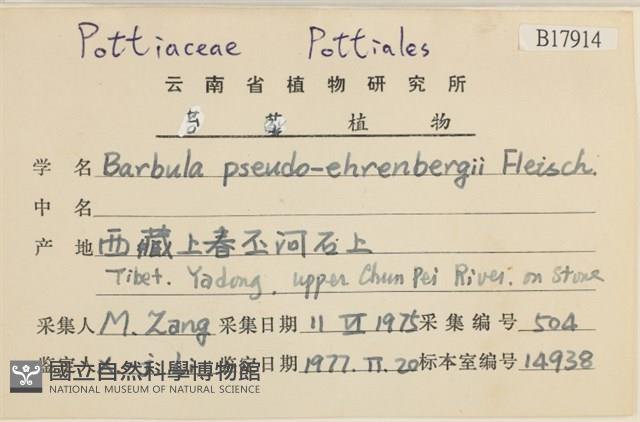 Pottiaceae Pottiales
B17914
云南省植物研究所
植物
学名 Barbula pseudo-ehrenbergii Fleisch.
中名
产地 西藏上春丕河石上
Tibet. Yadong, upper Chun Pei River. on stone
采集人 M. Zang 采集日期 11 VI 1975 采集编号 504
鉴定人 X. j. Li 鉴定日期 1977. II. 20 标本室编号 14938
國立自然科學博物館
NATIONAL MUSEUM OF NATURAL SCIENCE